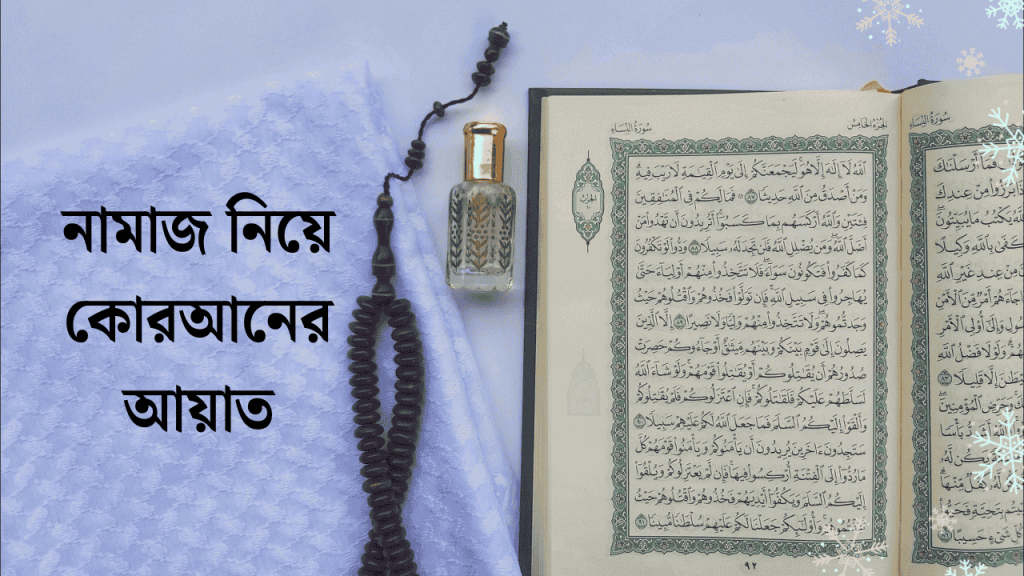 নামাজ নিয়ে
কোরআনের
আয়াত
سُورَةُ النِّسَاءِ
الجُزْءُ الخَامِسُ
الحِزْبُ
اللَّهُ لَا إِلَٰهَ إِلَّا هُوَ لَيَجْمَعَنَّكُمْ إِلَىٰ يَوْمِ الْقِيَٰمَةِ لَا رَيْبَ فِيهِ
وَمَنْ أَصْدَقُ مِنَ اللَّهِ حَدِيثًا ٨٧ فَمَا لَكُمْ فِي الْمُنَٰفِقِينَ
فِئَتَيْنِ وَاللَّهُ أَرْكَسَهُم بِمَا كَسَبُوا أَتُرِيدُونَ أَن تَهْدُوا مَنْ
أَضَلَّ اللَّهُ وَمَن يُضْلِلِ اللَّهُ فَلَن تَجِدَ لَهُ سَبِيلًا ٨٨ وَدُّوا لَوْ تَكْفُرُونَ
كَمَا كَفَرُوا فَتَكُونُونَ سَوَاءً فَلَا تَتَّخِذُوا مِنْهُمْ أَوْلِيَاءَ حَتَّىٰ
يُهَاجِرُوا فِي سَبِيلِ اللَّهِ فَإِن تَوَلَّوْا فَخُذُوهُمْ وَاقْتُلُوهُمْ حَيْثُ
وَجَدتُّمُوهُمْ وَلَا تَتَّخِذُوا مِنْهُمْ وَلِيًّا وَلَا نَصِيرًا ٨٩ إِلَّا الَّذِينَ
يَصِلُونَ إِلَىٰ قَوْمٍ بَيْنَكُمْ وَبَيْنَهُم مِّيثَٰقٌ أَوْ جَاءُوكُمْ حَصِرَتْ
صُدُورُهُمْ أَن يُقَٰتِلُوكُمْ أَوْ يُقَٰتِلُوا قَوْمَهُمْ وَلَوْ شَاءَ اللَّهُ
لَسَلَّطَهُمْ عَلَيْكُمْ فَلَقَٰتَلُوكُمْ فَإِنِ اعْتَزَلُوكُمْ فَلَمْ يُقَٰتِلُوكُمْ
وَأَلْقَوْا إِلَيْكُمُ السَّلَمَ فَمَا جَعَلَ اللَّهُ لَكُمْ عَلَيْهِمْ سَبِيلًا ٩٠
سَتَجِدُونَ ءَاخَرِينَ يُرِيدُونَ أَن يَأْمَنُوكُمْ وَيَأْمَنُوا قَوْمَهُمْ كُلَّ
مَا رُدُّوا إِلَى الْفِتْنَةِ أُرْكِسُوا فِيهَا فَإِن لَّمْ يَعْتَزِلُوكُمْ وَيُلْقُوا
إِلَيْكُمُ السَّلَمَ وَيَكُفُّوا أَيْدِيَهُمْ فَخُذُوهُمْ وَاقْتُلُوهُمْ حَيْثُ
ثَقِفْتُمُوهُمْ وَأُولَٰئِكُمْ جَعَلْنَا لَكُمْ عَلَيْهِمْ سُلْطَٰنًا مُّبِينًا ٩١
٩٢
سُورَةُ النِّسَاءِ